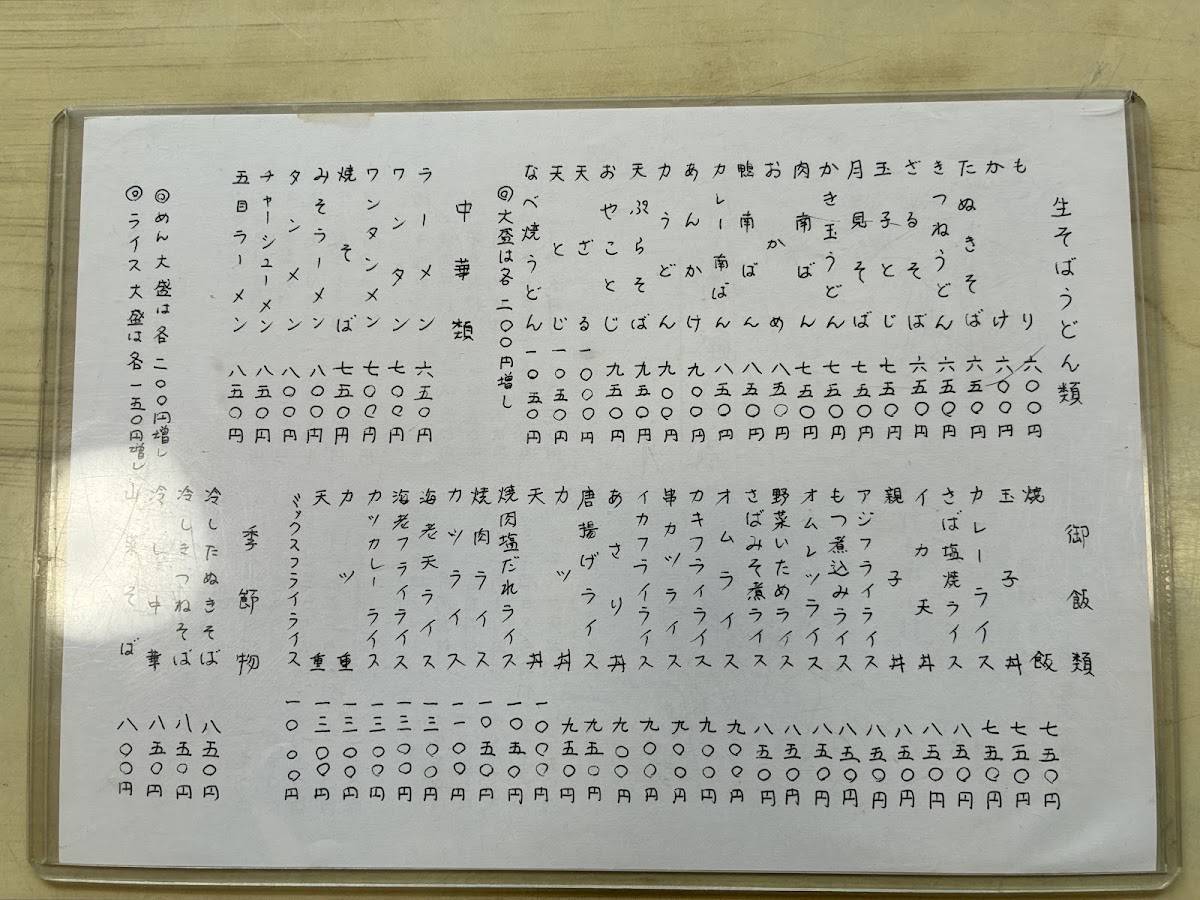 生そばうどん類
もり 六〇〇円
かけ 六〇〇円
たぬきそば 六五〇円
きつねうどん 六五〇円
ざるそば 六五〇円
玉子とじ 七五〇円
月見そば 七五〇円
かき玉うどん 七五〇円
肉南ばん 七五〇円
おかめ 八五〇円
鴨南ばん 八五〇円
カレー南ばん 八五〇円
あんかけ 九〇〇円
力うどん 九〇〇円
天ぷらそば 九五〇円
おやことじ 九五〇円
天ざる 一〇〇〇円
天とじ 一〇五〇円
なべ焼うどん 一〇五〇円
◎大盛は各二〇〇円増し
中華類
ラーメン 六五〇円
ワンタン 七〇〇円
ワンタンメン 七〇〇円
焼そば 七五〇円
みそラーメン 八〇〇円
タンメン 八〇〇円
チャーシューメン 八五〇円
五目ラーメン 八五〇円
◎めん大盛は各二〇〇円増し
◎ライス大盛は各一五〇円増し
御飯類
焼飯 七五〇円
玉子丼 七五〇円
カレーライス 七五〇円
さば塩焼ライス 八五〇円
イカ天丼 八五〇円
親子丼 八五〇円
アジフライライス 八五〇円
もつ煮込みライス 八五〇円
オムレツライス 八五〇円
野菜いためライス 八五〇円
さばみそ煮ライス 八五〇円
オムライス 九〇〇円
カキフライライス 九〇〇円
串カツライス 九〇〇円
イカフライライス 九〇〇円
あさり丼 九〇〇円
唐揚げライス 九五〇円
カツ丼 九五〇円
天丼 一〇〇〇円
焼肉塩だれライス 一〇五〇円
焼肉ライス 一〇五〇円
カツライス 一一〇〇円
海老天ライス 一三〇〇円
海老フライライス 一三〇〇円
カツカレーライス 一三〇〇円
カツ重 一三〇〇円
天重 一三〇〇円
ミックスフライライス 一〇〇〇円
季節物
冷したぬきそば 八五〇円
冷しきつねそば 八五〇円
冷し中華 八五〇円
山菜そば 八〇〇円